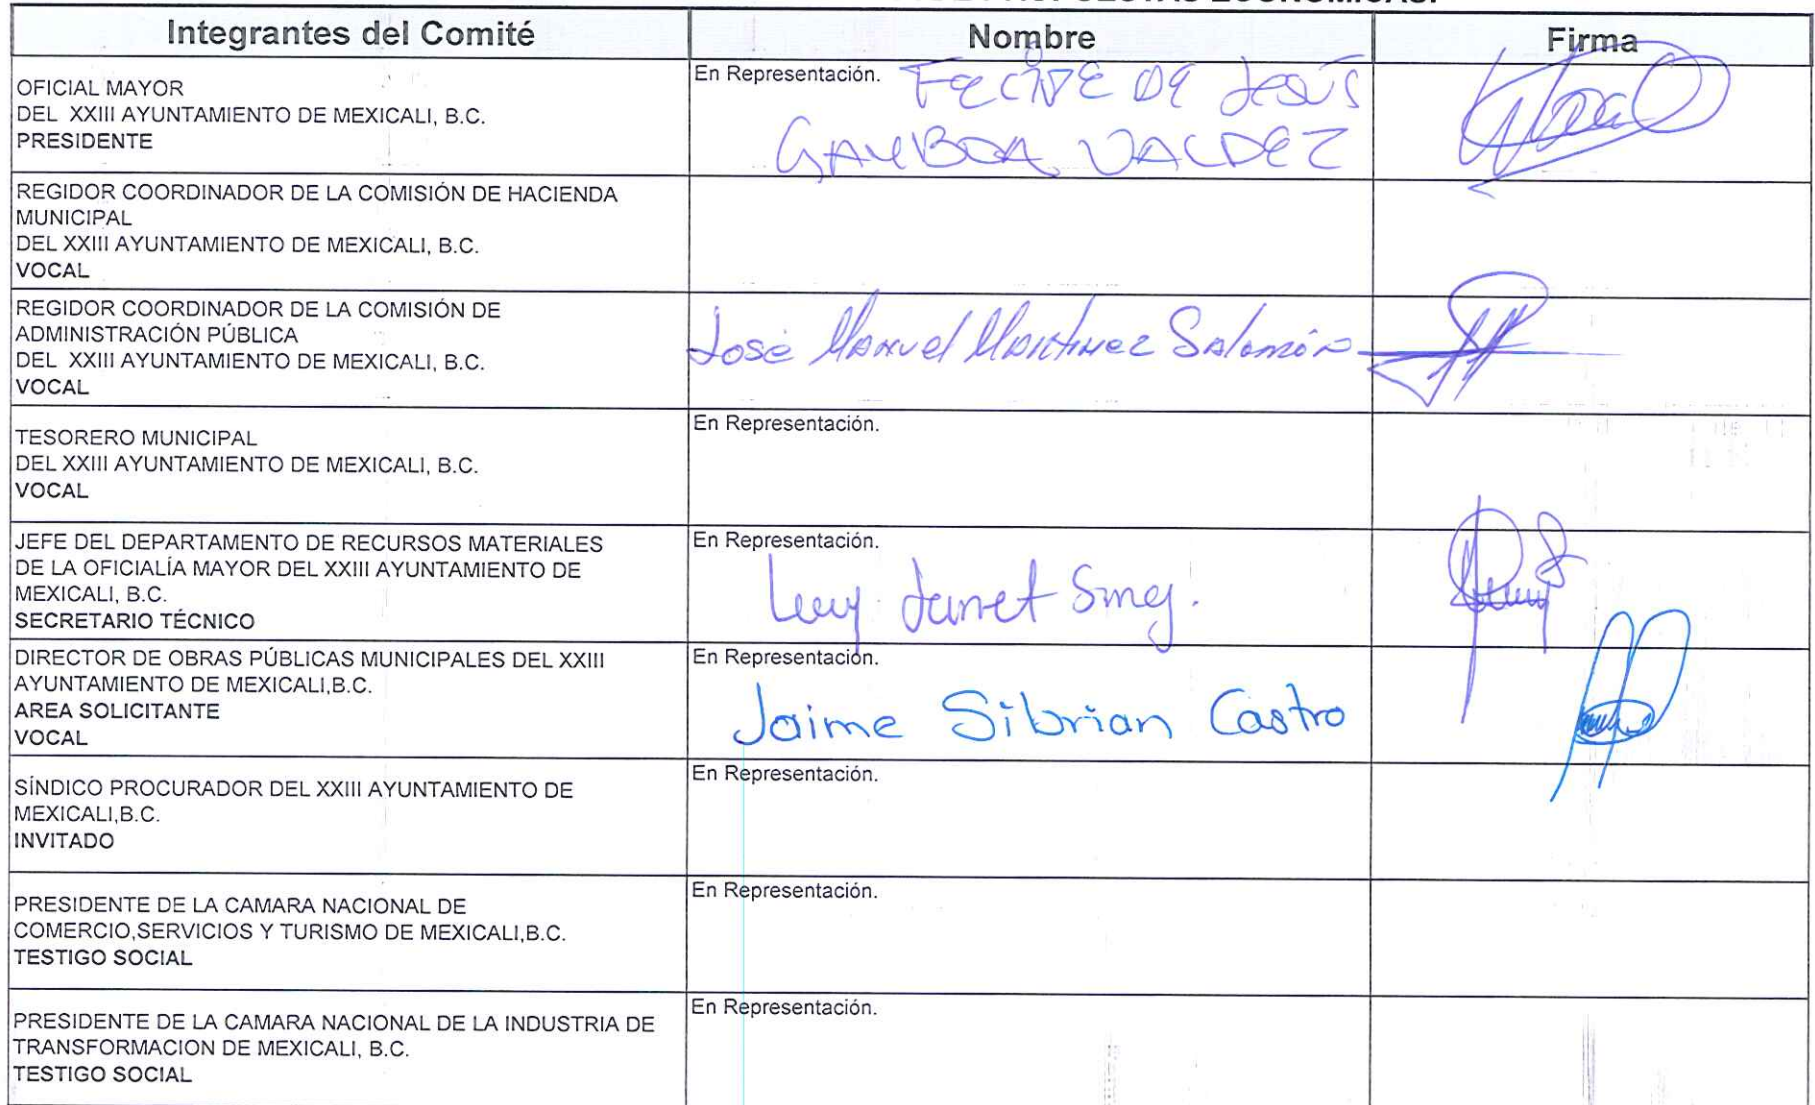 PROPUESTAS ECONÓMICAS.
Integrantes del Comité
Nombre
Firma
OFICIAL MAYOR
DEL XXIII AYUNTAMIENTO DE MEXICALI, B.C.
PRESIDENTE
En Representación.
FELIPE DE JESÚS
GAMBOA VALDEZ
REGIDOR COORDINADOR DE LA COMISIÓN DE HACIENDA
MUNICIPAL
DEL XXIII AYUNTAMIENTO DE MEXICALI, B.C.
VOCAL
REGIDOR COORDINADOR DE LA COMISIÓN DE
ADMINISTRACIÓN PÚBLICA
DEL XXIII AYUNTAMIENTO DE MEXICALI, B.C.
VOCAL
José Manuel Martinez Salomón
TESORERO MUNICIPAL
DEL XXIII AYUNTAMIENTO DE MEXICALI, B.C.
VOCAL
En Representación.
JEFE DEL DEPARTAMENTO DE RECURSOS MATERIALES
DE LA OFICIALÍA MAYOR DEL XXIII AYUNTAMIENTO DE
MEXICALI, B.C.
SECRETARIO TÉCNICO
En Representación.
Janet
DIRECTOR DE OBRAS PÚBLICAS MUNICIPALES DEL XXIII
AYUNTAMIENTO DE MEXICALI,B.C.
AREA SOLICITANTE
VOCAL
En Representación.
Jaime Sibrian Castro
SÍNDICO PROCURADOR DEL XXIII AYUNTAMIENTO DE
MEXICALI,B.C.
INVITADO
En Representación.
PRESIDENTE DE LA CAMARA NACIONAL DE
COMERCIO,SERVICIOS Y TURISMO DE MEXICALI,B.C.
TESTIGO SOCIAL
En Representación.
PRESIDENTE DE LA CAMARA NACIONAL DE LA INDUSTRIA DE
TRANSFORMACION DE MEXICALI, B.C.
TESTIGO SOCIAL
En Representación.